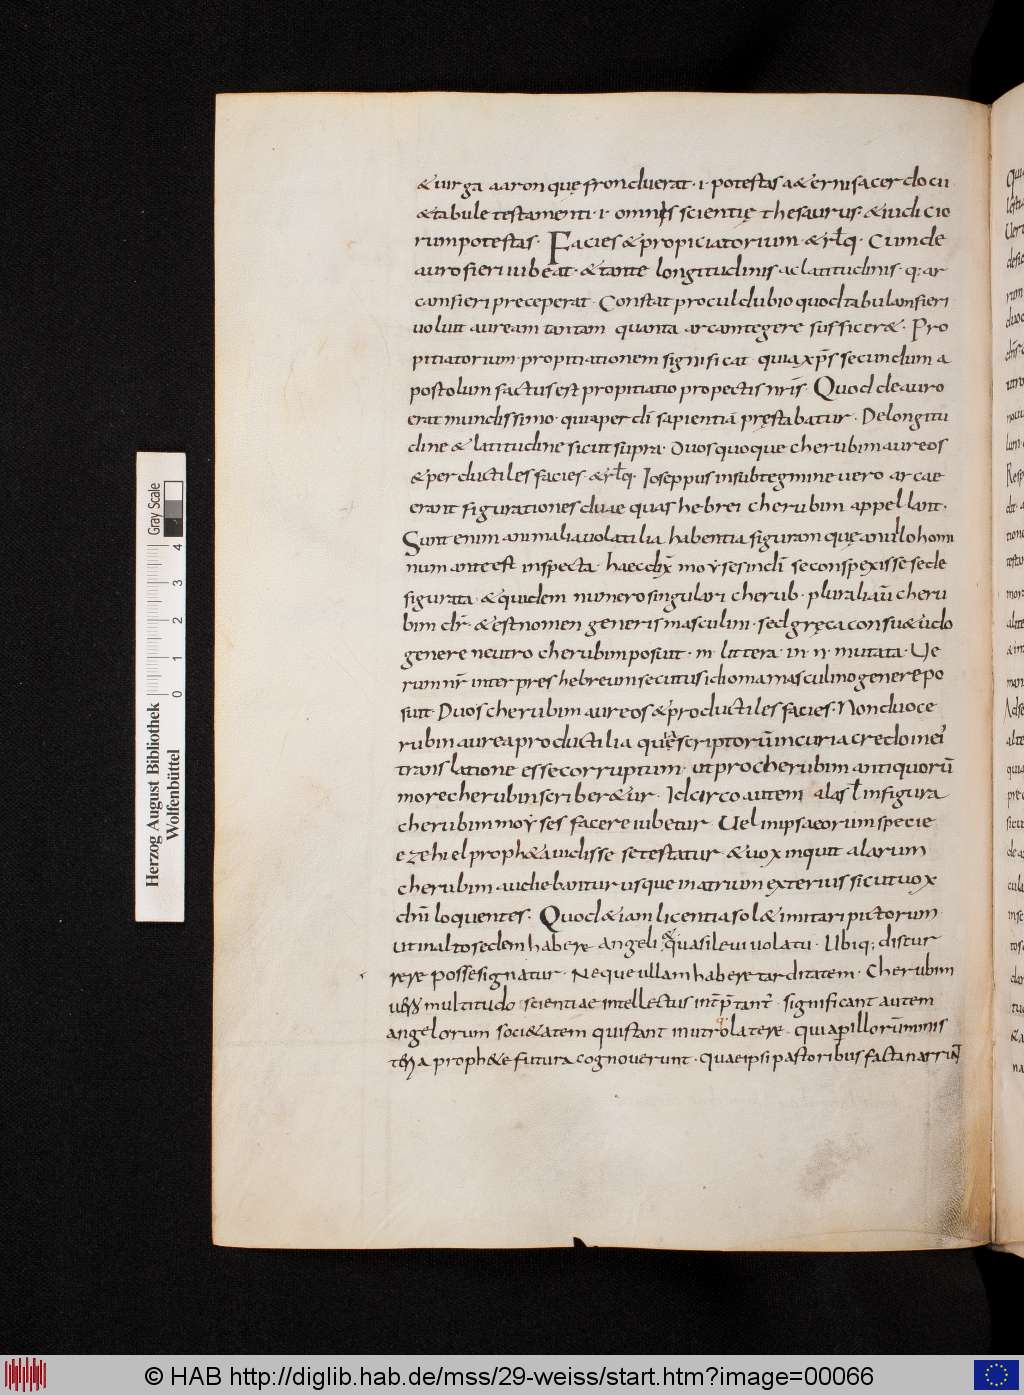 & uirga aaron quę fronduerat · i · potestas a&erni sacerdocii
& tabule testamenti · i · omnis scientię thesaurus · & iudicio
rum potestas · Facies & propiciatorium · & rł q · Cum de
auro fieri iube&at · & tante longitudinis ac latitudinis · q; ar
cam fieri preceperat · Constat procul dubio quod tabulam fieri
uoluit auream tantam quanta arcam tegere sufficer& · Pro
pitiatorium propitiationem significat quia xp̄s secundum a
postolum factus est propitiatio pro pectis nr̄is · Quod de auro
erat mundissimo · quia per dī sapientiā pręstabatur · De longitu
dine & latitudine sicut supra · Duos quoque cherubim aureos
& perductiles facies · & rł q · Ioseppus in subtegmine uero arcae
erant figurationes duae quas hebrei cherubim appellant ·
Sunt enim animalia uolatilia habentia figuram quę a nullo homi
num ante est inspecta haec moyses in dī se conspexisse sede
figurata · & quidem numero singulari cherub · plurali aū cheru
bim dr̄ · & est nomen generis masculini · sed gręca consu&udo
genere neutro cherubim posuit · m · littera · in · n · mutata · Ue
rum nr̄ interpres hebreum secutus idioma masculino genere po
suit · Duos cherubim aureos & productiles facies · Non duo ce
rubin aurea productilia que scriptorū incuria credo in ei'
translatione esse corruptum · ut pro cherubim antiquorū
more cherubin scriber&ur · Idcirco autem alas ł in figura
cherubim moyses facere iubetur Uel in ipsa eorum specie
ezehiel proph&a uidisse se testatur & uox inquit alarum
cherubim audiebantur usque in atrium exterius sicut uox
dn̄i loquentes · Quod & iam licentia sol& imitari pictorum
ut in alto sedem habere angeli & quasi leui uolatu · Ubiq; discur
rere posse signatur · Neque ullam habere tarditatem · Cherubim
multitudo scientiae intellectus int̄p̄tant̄ · significant autem
angelorum soci&atem qui stant in utroq; latere · qui a pillorū minis
proph&e futura cognouerunt · quae ipsi pastoribus facta narrar̄
Gray Scale
0 1 2 3 4
Herzog August Bibliothek
Wolfenbüttel
© HAB http://diglib.hab.de/mss/29-weiss/start.htm?image=00066